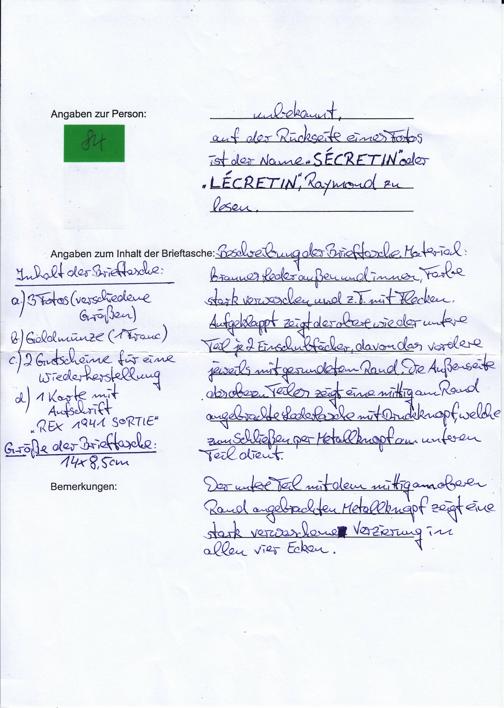 Angaben zur Person:
84
unbekannt,
auf der Rückseite eines Fotos
ist der Name „SÉCRETIN" oder
„LÉCRETIN", Raymond zu
lesen.
Angaben zum Inhalt der Brieftasche:
Inhalt der Brieftasche:
a) 3 Fotos (verschiedene
Größen)
b) Geldmünze (1 Franc)
c) 2 Gutscheine für eine
Wiederherstellung
d) 1 Karte mit
Aufschrift
„REX 1941 SORTIE"
Größe der Brieftasche:
14x8,5cm
Beschreibung der Brieftasche, Material:
Braunes Leder außen und innen, Farbe
stark verwaschen und z.T. mit Flecken.
Aufgeklappt zeigt der obere wie der untere
Teil je 2 Einschubfächer, davon das vordere
jeweils mit gerundetem Rand. Die Außenseite
des oberen Teiles zeigt eine mittig am Rand
angebrachte Lederlasche mit Druckknopf, welche
zum Schließen per Metallknopf am unteren
Teil dient.
Bemerkungen:
Der untere Teil mit dem mittig am oberen
Rand angebrachten Metallknopf zeigt eine
stark verwaschene Verzierung in
allen vier Ecken.